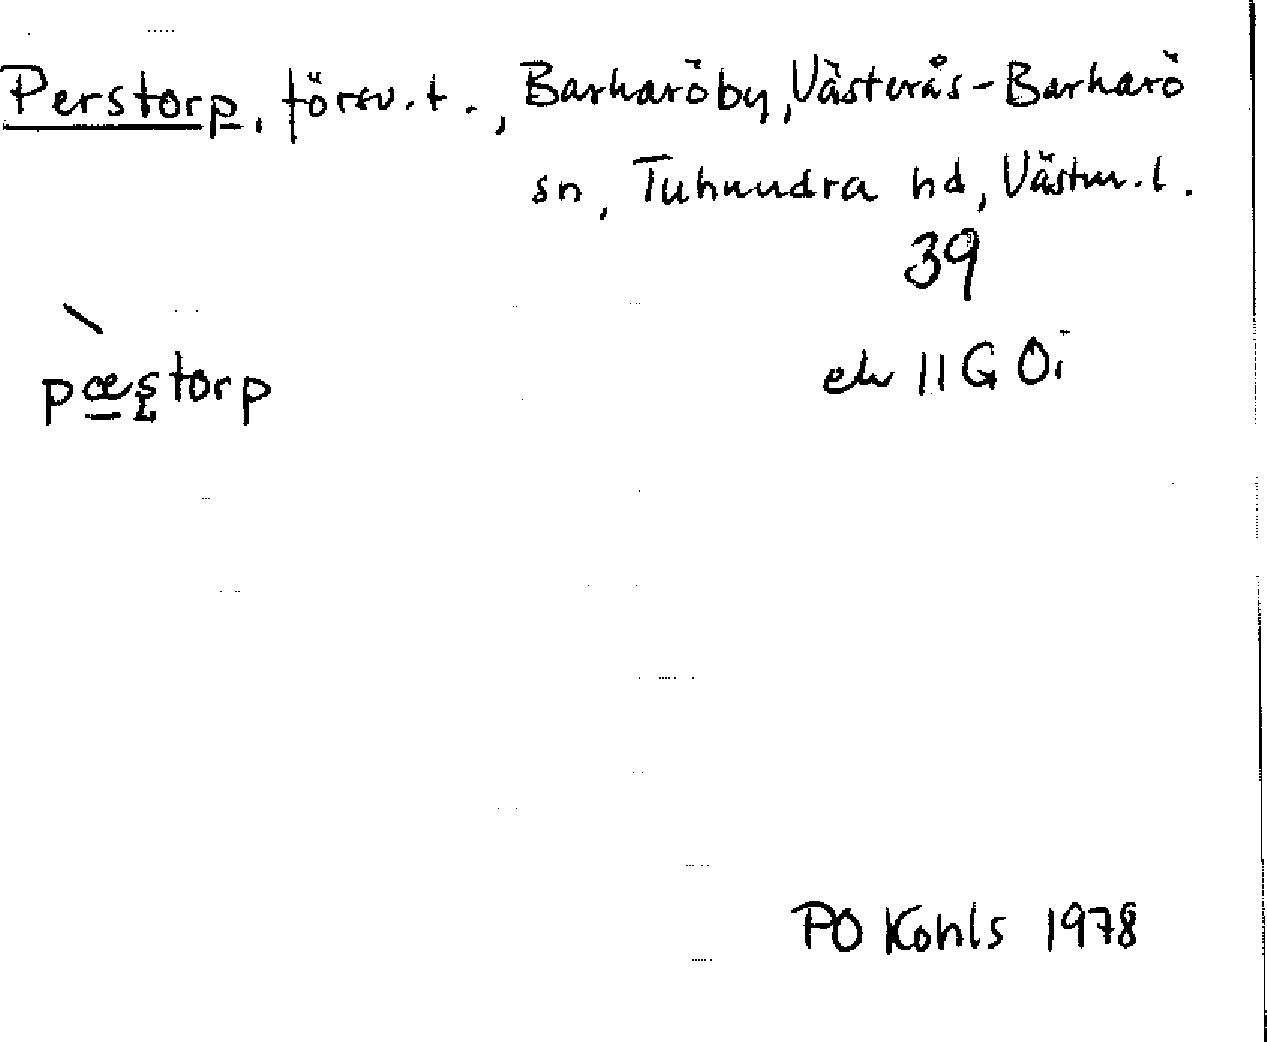 Perstorp, försv. t., Barkaröby, Västerås-Barkarö
sn, Tuhundra hd, Västm. l.
39
ek 11G 0i
pæstorp
PO Kohls 1978